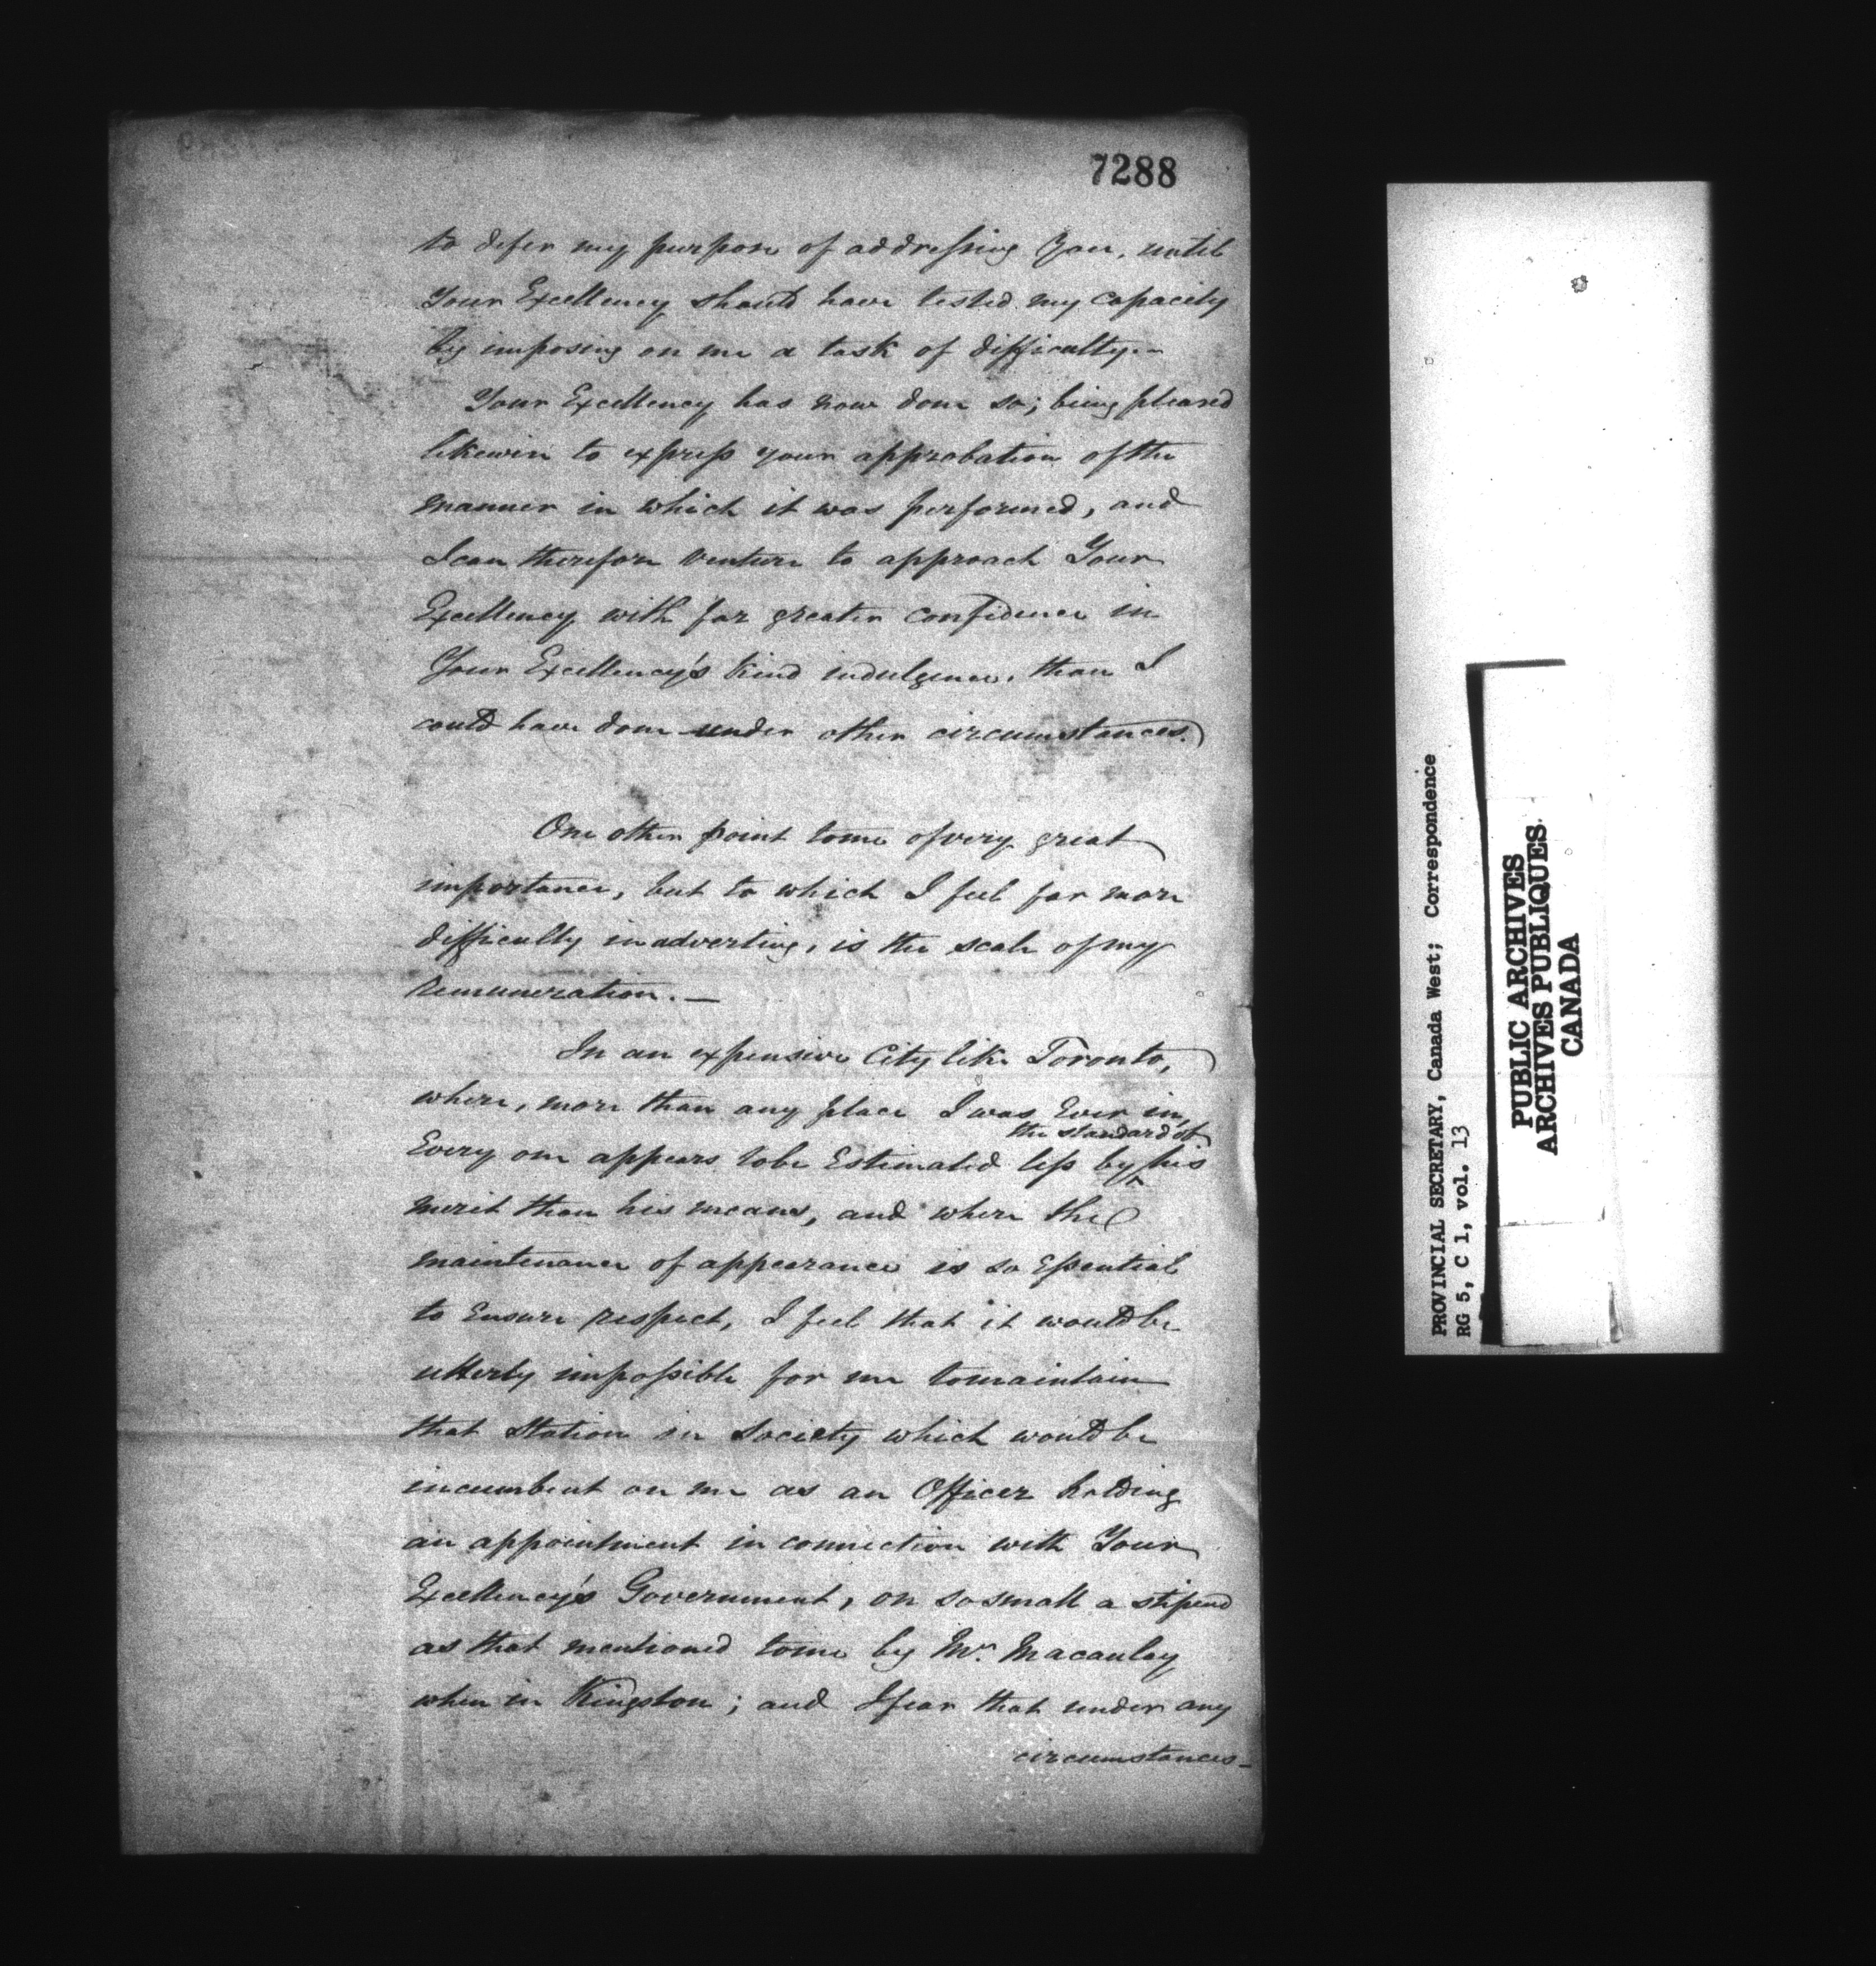 7288
to defer my purpose of addressing You, until
Your Excellency should have tested my capacity
by imposing on me a task of difficulty.—
Your Excellency has now done so; being pleased
likewise to express your approbation of the
manner in which it was performed, and
I can therefore venture to approach Your
Excellency with far greater confidence in
Your Excellency's kind indulgence, than I
could have done under other circumstances.
One other point to me of very great
importance, but to which I feel far more
difficulty in adverting, is the scale of my
remuneration.—
In an expensive City like Toronto,
where, more than any place I was Ever in,
the standard of
Every one appears to be Estimated less by his
merit than his means, and where the
maintenance of appearance is so Essential
to Ensure respect, I feel that it would be
utterly impossible for me to maintain
that Station in Society which would be
incumbent on me as an Officer holding
an appointment in connection with Your
Excellency's Government, on so small a stipend
as that mentioned to me by Mr. Macaulay
when in Kingston; and I fear that under any
circumstances—
PROVINCIAL SECRETARY, Canada West; Correspondence
RG 5, C 1, vol. 13
PUBLIC ARCHIVES
ARCHIVES PUBLIQUES
CANADA